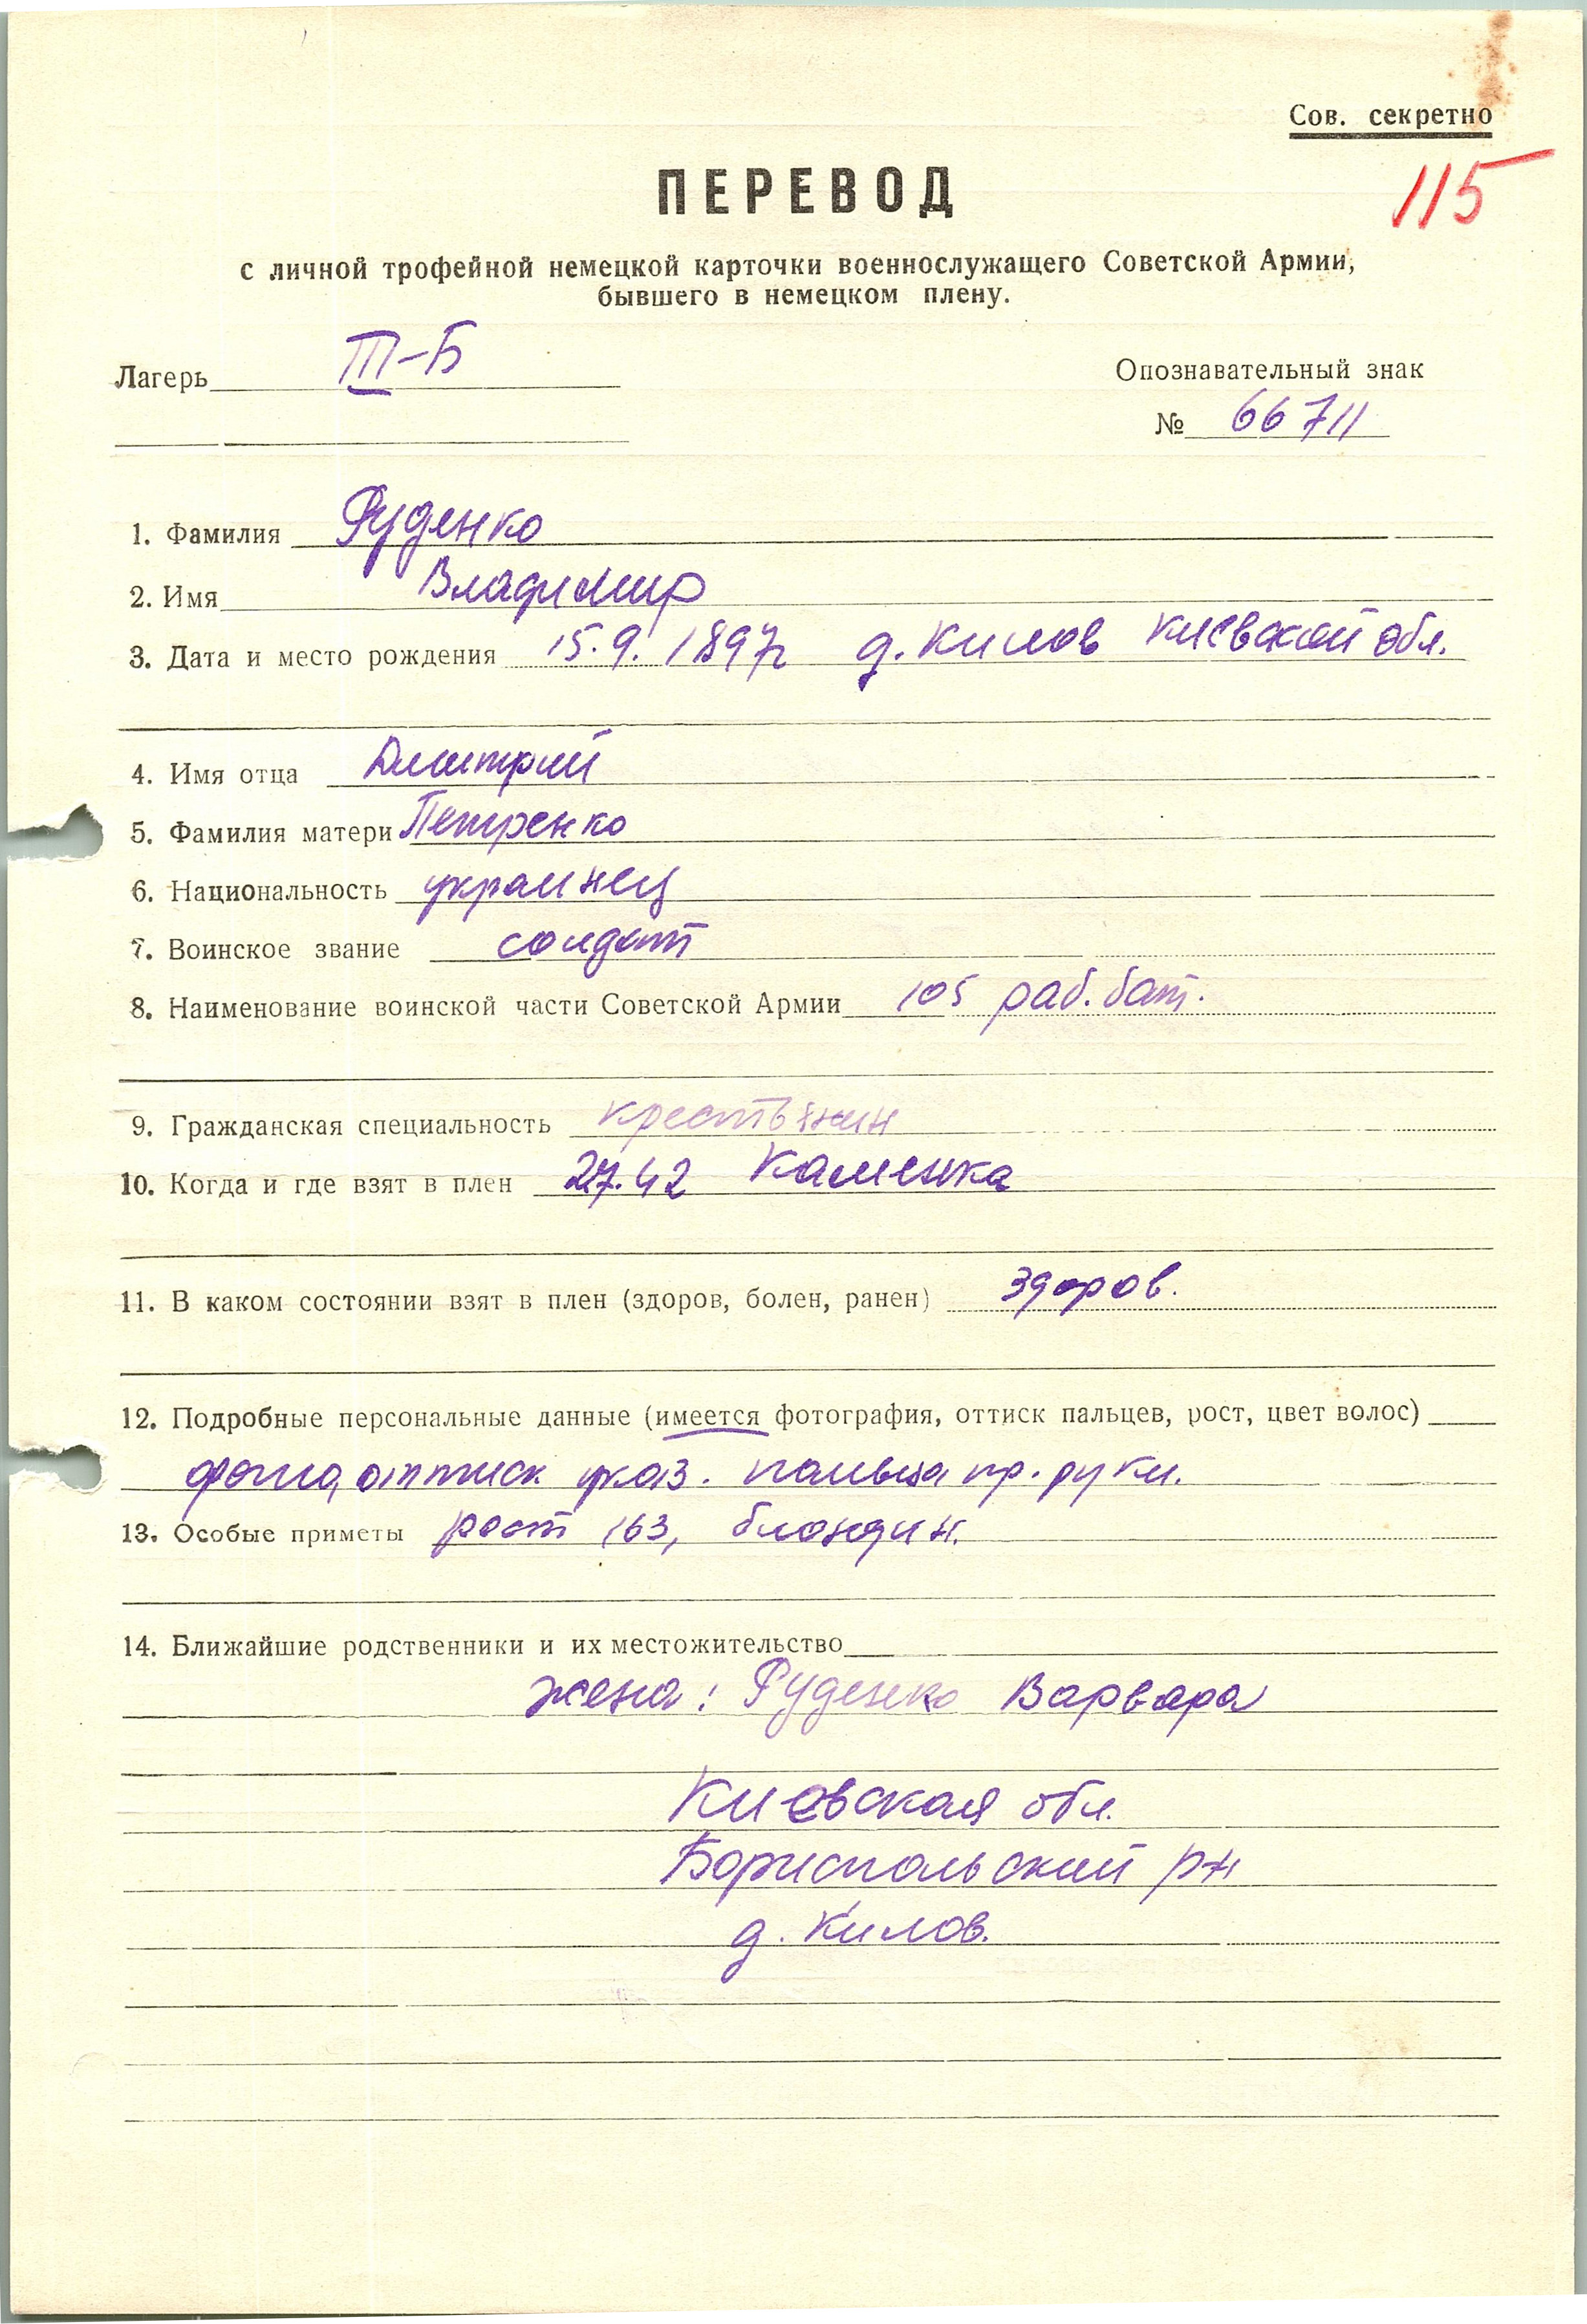 Сов. секретно
115
ПЕРЕВОД
с личной трофейной немецкой карточки военнослужащего Советской Армии,
бывшего в немецком плену.
Лагерь III-Б
Опознавательный знак
№ 66711
1. Фамилия Руденко
2. Имя Владимир
3. Дата и место рождения 15.9.1897г д. Килов Киевской обл.
4. Имя отца Дмитрий
5. Фамилия матери Петренко
6. Национальность украинец
7. Воинское звание солдат
8. Наименование воинской части Советской Армии 105 раб. бат.
9. Гражданская специальность крестьянин
10. Когда и где взят в плен 27.42 Каменка
11. В каком состоянии взят в плен (здоров, болен, ранен) здоров.
12. Подробные персональные данные (имеется фотография, оттиск пальцев, рост, цвет волос)
фото, оттиск указ. пальца пр. руки.
13. Особые приметы рост 163, блондин.
14. Ближайшие родственники и их местожительство
жена: Руденко Варвара
Киевская обл.
Бориспольский р-н
д. Килов.